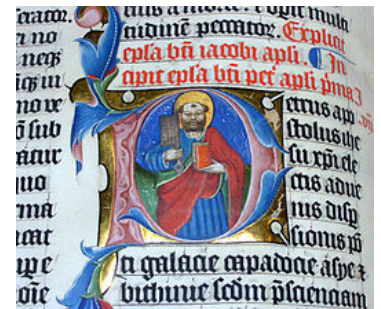 crator.
no
neqꝫ
ma
cat
eius a morte. ⁊ opit multi
tudinē peccator. Explicit
ep̄la bt̄i iacobi apl̄i. ¶ In
cipit ep̄la bt̄i pet̛ apl̄i p̄ma
Petrus apo
stolus ihe
su xp̄i ele
ctis adue
nis disp
sionis pō
ti galacie capadocie asye ⁊
bithinie scd̄m p̄scienciam